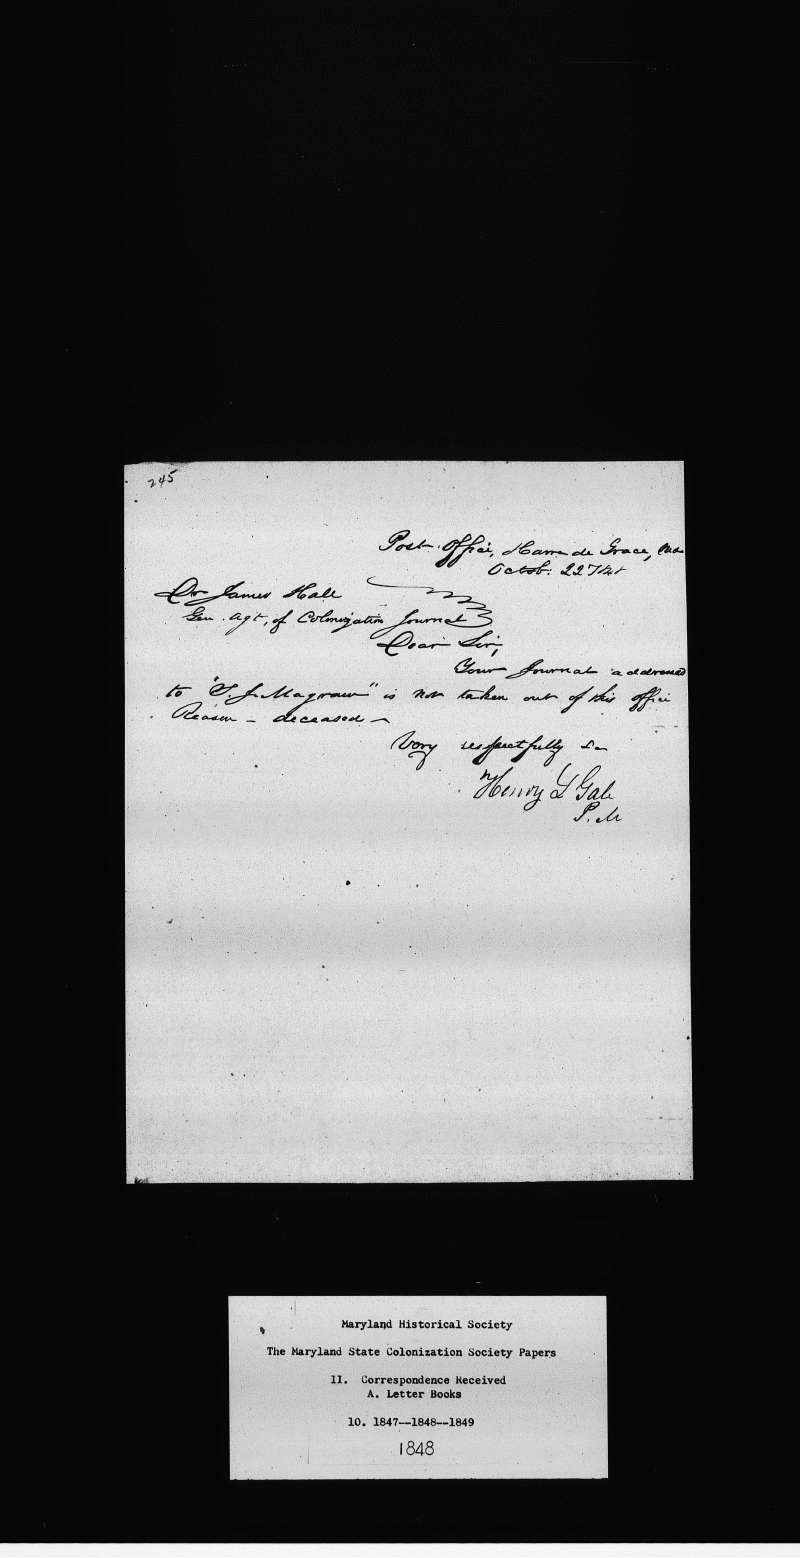 245
Post Office, Havre de Grace, Md.
Octob: 22
Dr James Hall
Gen. Agt, of Colonization Journal
Dear Sir,
Your Journal addressed
to "T. J. Magraw" is not taken out of this office
Reason - deceased -
Very respectfully
Henry L Gale
P. M
Maryland Historical Society
The Maryland State Colonization Society Papers
II. Correspondence Received
A. Letter Books
10. 1847--1848--1849
1848